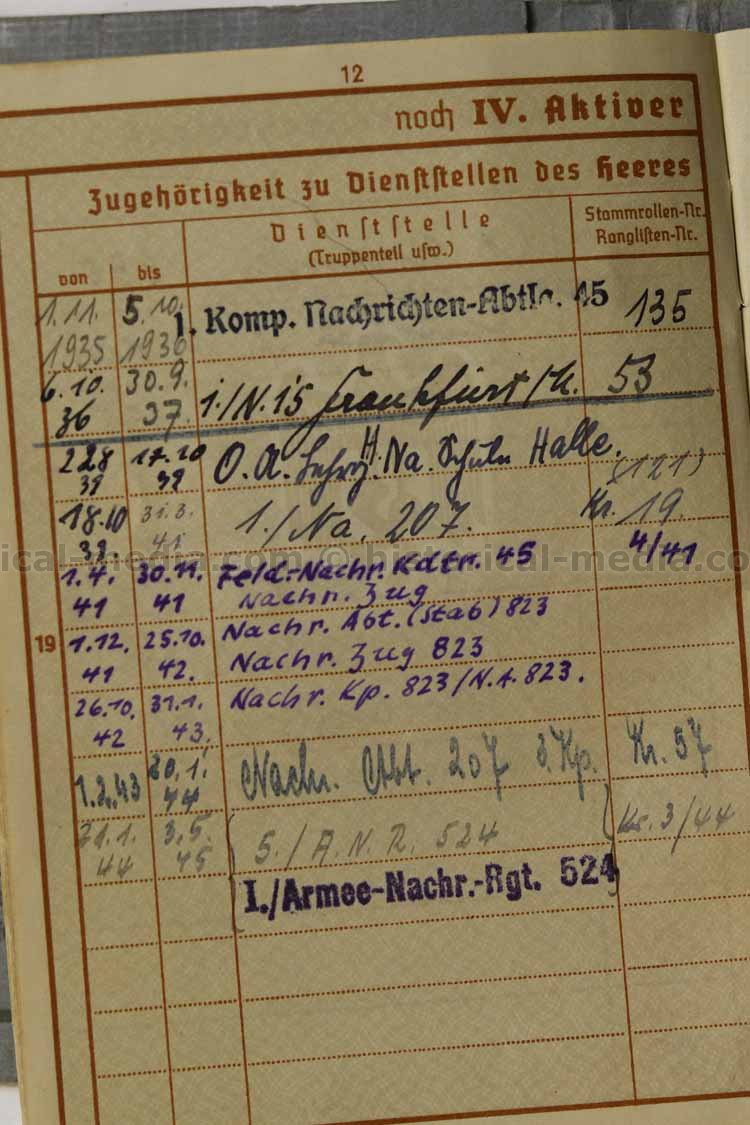 12
noch IV. Aktiver
Zugehörigkeit zu Dienststellen des Heeres
von
bis
Dienststelle
(Truppenteil usw.)
Stammrollen-Nr.
Ranglisten-Nr.
1.11. 1935
5.10. 1936
1. Komp. Nachrichten-Abtlg. 45
135
6.10. 36
30.9. 37.
1./N.15 Frankfurt/M.
53
22 8 39
17.10 39
O.A. H. Na. Schule Halle.
(121)
18.10 39.
31.3. 41
1./Na. 207.
Kr. 19.
historical-media.com © historical-media.com
1.4. 41
30.11. 41
Feld.-Nachr. Kdtr. 45
4/41
Nachr. Zug
19
1.12. 41
25.10. 42.
Nachr. Abt. (Stab) 823
Nachr. Zug 823
26.10. 42
31.1. 43.
Nachr. Kp. 823/N.A. 823.
1.2.43
20.1. 44
Nachr. Abt. 207 3.Kp.
Kr. 57
21.1. 44
3.5. 45
5./A.N.R. 524
Kr. 3/44
I./Armee-Nachr.-Rgt. 524